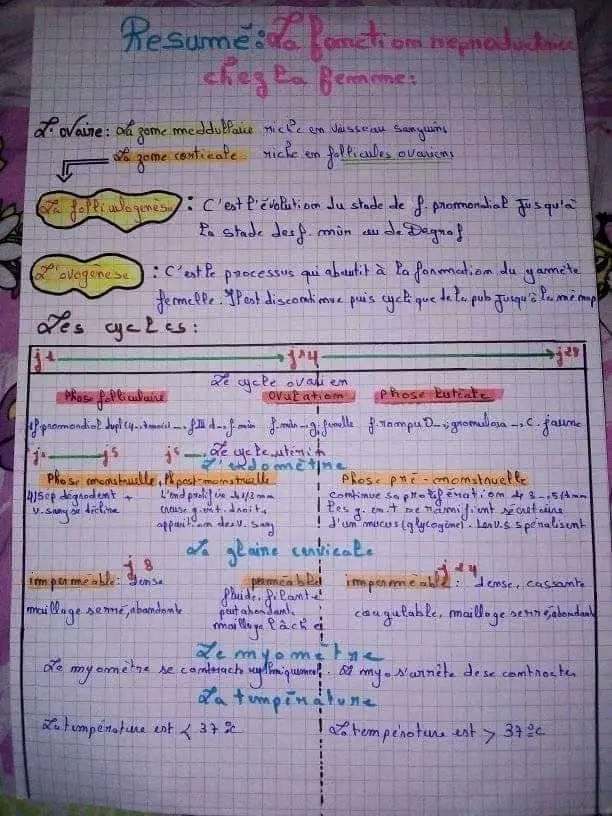 Resumé: La fonction reproductrice
chez la femme:
L'ovaire: La zome meddullaire riche en vaisseau sanguins
La zome conticale riche en follicules ovariens
La folliculogenèse : C'est l'évolution du stade de f. promondial Jusqu'à
la stade des f. mûn ou de Degraf
L'ovogenese : C'est le processus qui aboutit à la formation du gamète
femelle. Il est discontinue puis cyclique de la pub Jusqu'à la ménop
Les cycles:
j1 j14 j28
Le cycle ovarien
Phase folliculaire ovulation Phase lutéale
f. rompu D
C. jaune
j1 j5 j5 Le cycle utérin
L'endomètre
Phase menstruelle, Ph post-menstruelle Phase pré-menstruelle
4/5 cp dégradent + L'end prolifère continue sa prolifération
v. sang se décline creuse g. en t. droits Les g. en t se ramifient sécrétaire
apparition des v. sang d'un mucus (glycogène). Les v.s spéralisent
La glaire cervicale
j8 j14
imperméable: dense perméable imperméable: dense, cassante
maillage serré, abandante fluide, filante coagulable, maillage serré, abandante
maillage lâche
Le myomètre
Le myomètre se contracte rythmiquement. Le myo s'arrête de se contracter
La température
La température est < 37 °c La température est > 37 °c